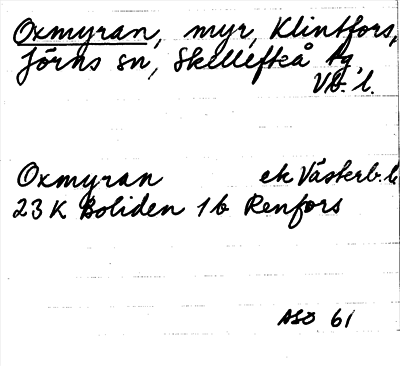 Oxmyran, myr, Klintfors,
Jörns sn, Skellefteå tg,
Vb. l.
Oxmyran ek Västerb. l.
23 K Boliden 1 b Renfors
ASÖ 61